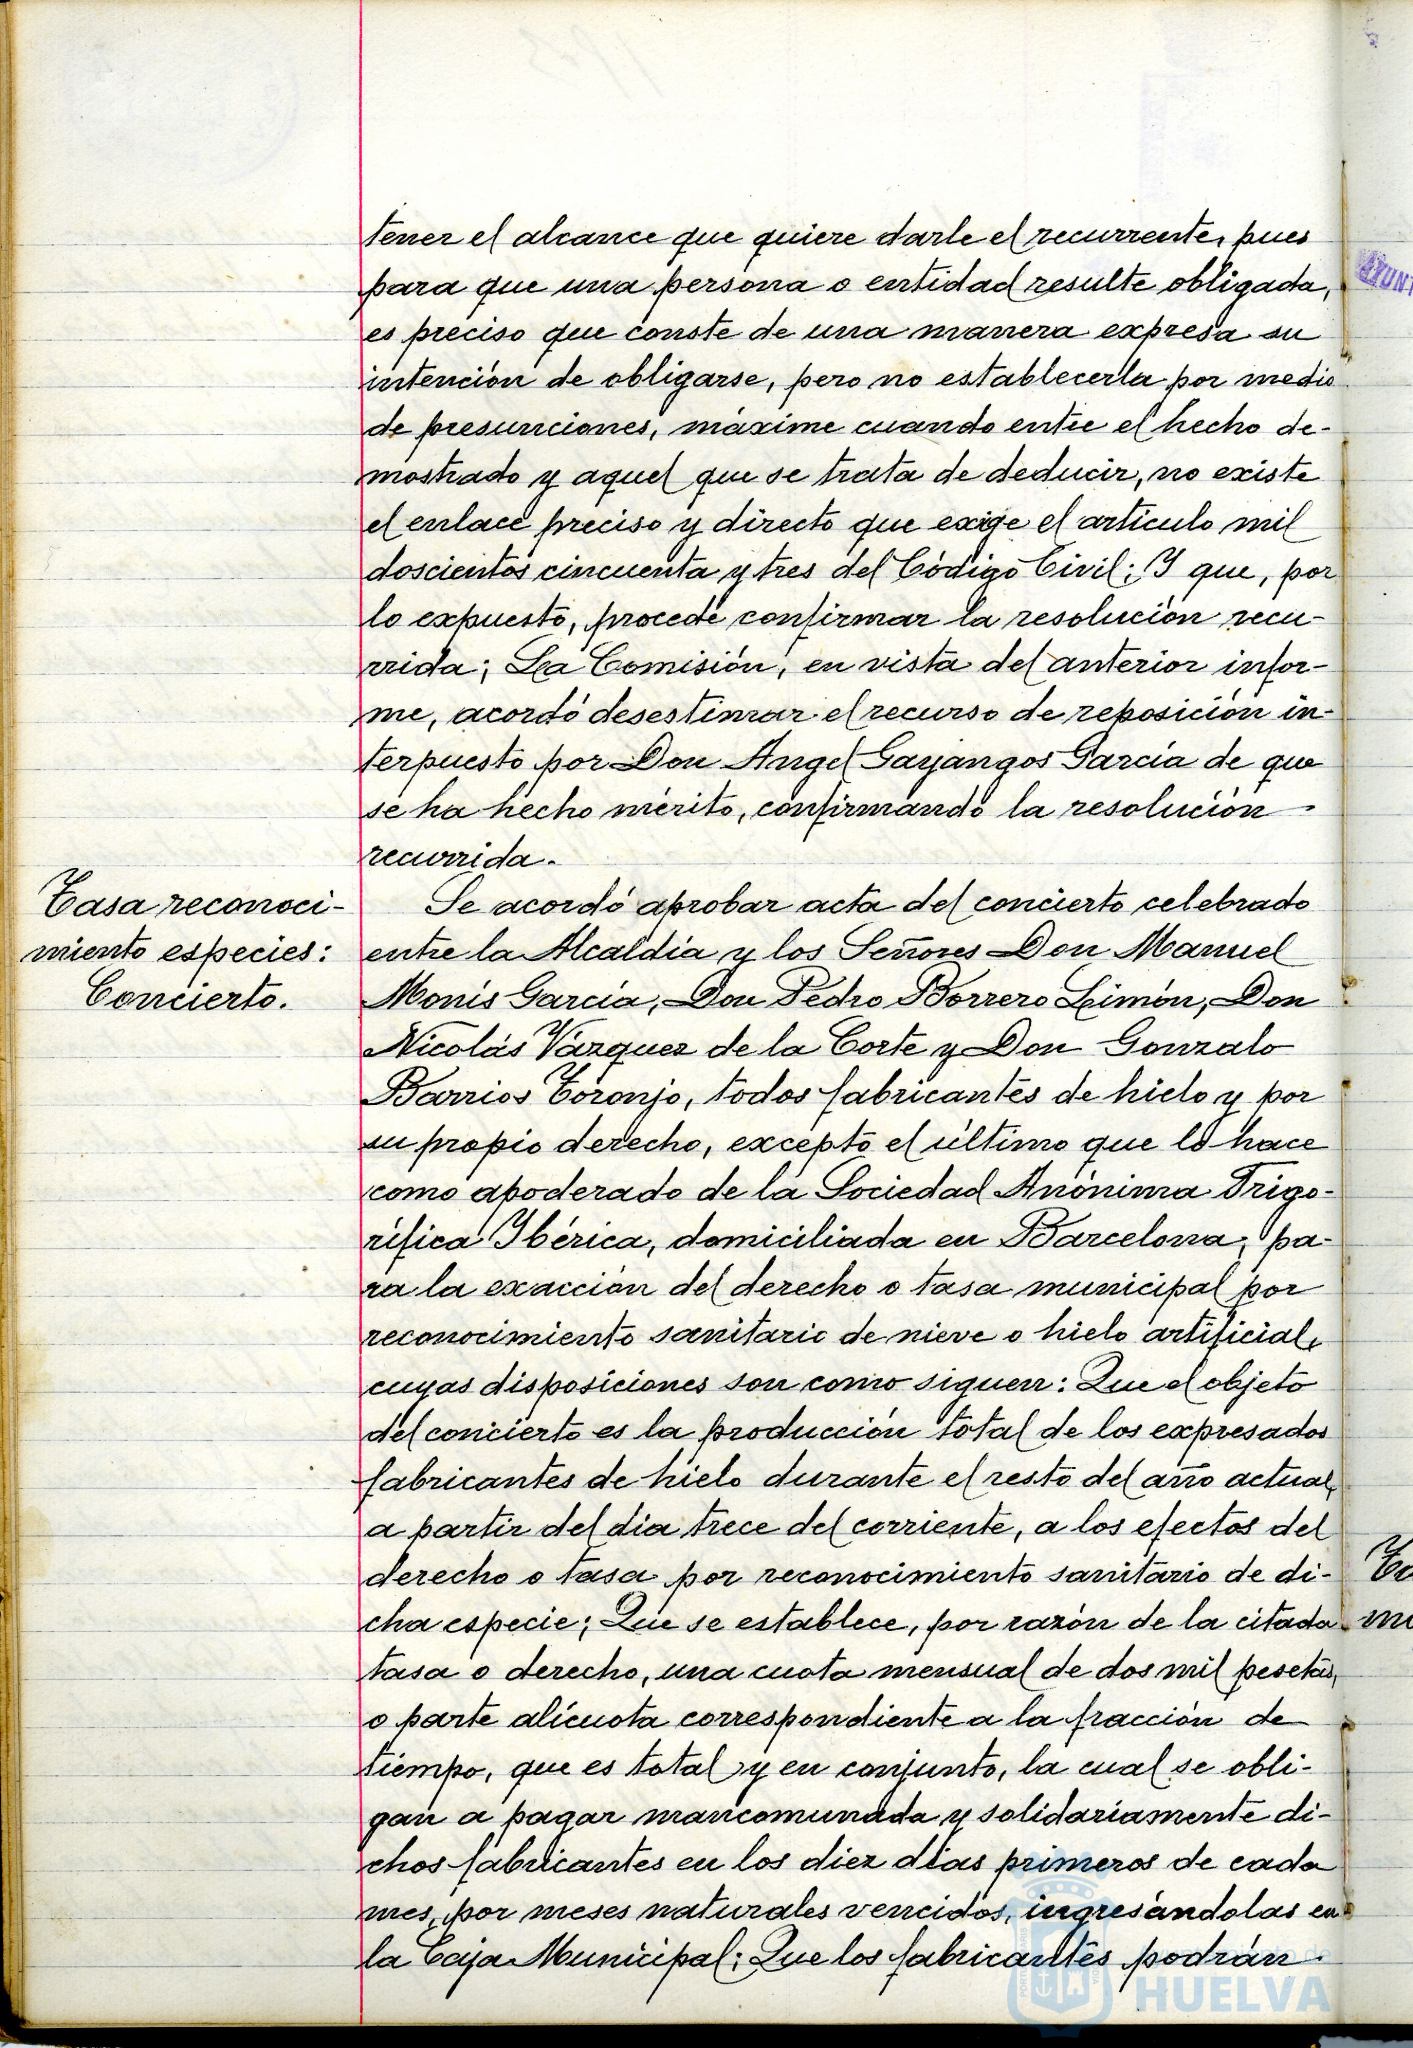 tener el alcance que quiere darle el recurrente, pues
para que una persona o entidad resulte obligada,
es preciso que conste de una manera expresa su
intención de obligarse, pero no establecerla por medio
de presunciones, máxime cuando entre el hecho de-
mostrado y aquel que se trata de deducir, no existe
el enlace preciso y directo que exige el artículo mil
doscientos cincuenta y tres del Código Civil; Y que, por
lo expuesto, procede confirmar la resolución recu-
rrida; La Comisión, en vista del anterior infor-
me, acordó desestimar el recurso de reposición in-
terpuesto por Don Angel Gayangos García de que
se ha hecho mérito, confirmando la resolución
recurrida.
Tasa reconoci-
miento especies:
Concierto.
Se acordó aprobar acta del concierto celebrado
entre la Alcaldía y los Señores Don Manuel
Monís García, Don Pedro Borrero Limón, Don
Nicolás Vázquez de la Corte y Don Gonzalo
Barrios Toronjo, todos fabricantes de hielo y por
su propio derecho, excepto el último que lo hace
como apoderado de la Sociedad Anónima Frigo-
rífica Ibérica, domiciliada en Barcelona, pa-
ra la exacción del derecho o tasa municipal por
reconocimiento sanitario de nieve o hielo artificial,
cuyas disposiciones son como siguen: Que el objeto
del concierto es la producción total de los expresados
fabricantes de hielo durante el resto del año actual,
a partir del día trece del corriente, a los efectos del
derecho o tasa por reconocimiento sanitario de di-
cha especie; Que se establece, por razón de la citada
tasa o derecho, una cuota mensual de dos mil pesetas,
o parte alícuota correspondiente a la fracción de
tiempo, que es total y en conjunto, la cual se obli-
gan a pagar mancomunada y solidariamente di-
chos fabricantes en los diez días primeros de cada
mes, por meses naturales vencidos, ingresándolas en
la Caja Municipal; Que los fabricantes podrán
HUELVA